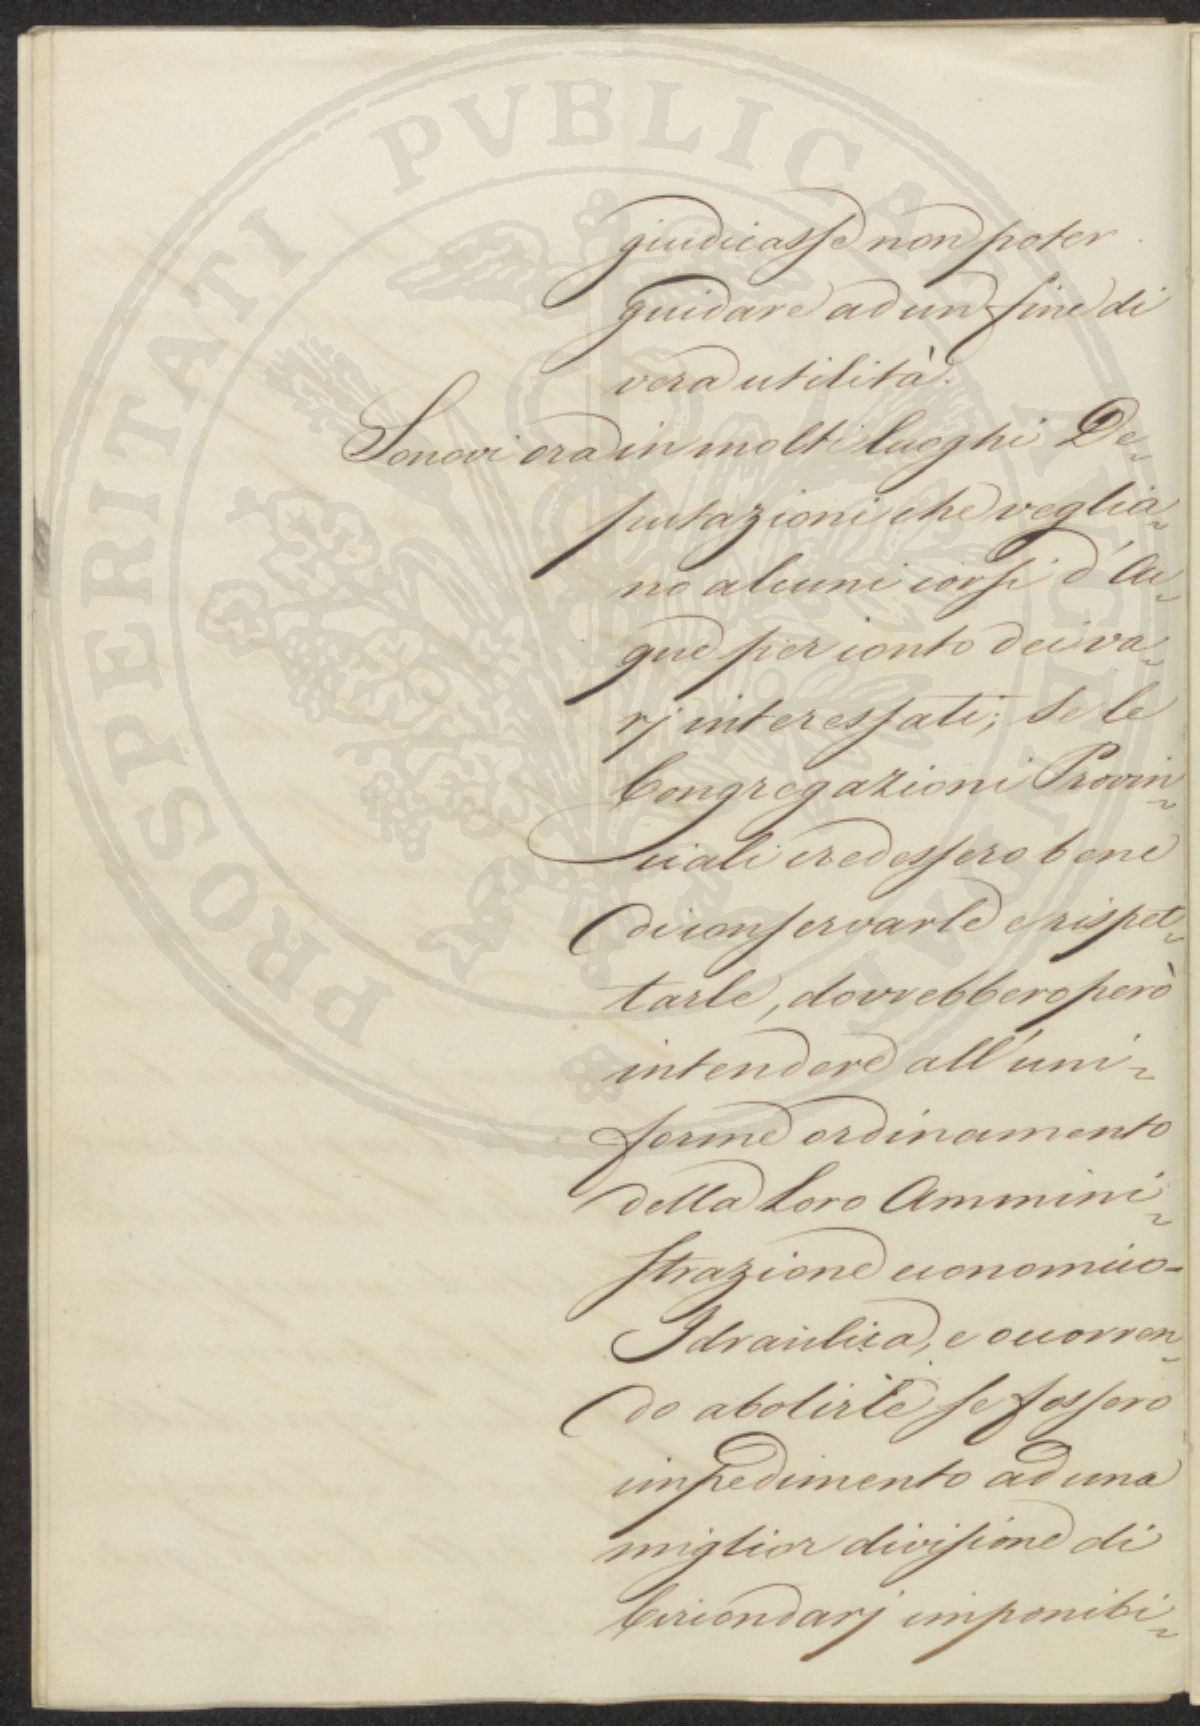 PROSPERITATI PVBLICAE AVGENDAE
giudicasse non poter
guidare ad un fine di
vera utilità.
Sonovi ora in molti luoghi De-
putazioni che veglia-
no alcuni corsi d'Ac-
que per conto dei va-
rj interessati; se le
Congregazioni Provin-
ciali credessero bene
di conservarle e rispet-
tarle, dovrebbero però
intendere all'uni-
forme ordinamento
della Loro Ammini-
strazione economico-
Idraulica, e occorren-
do abolirle se fossero
impedimento ad una
miglior divisione di
Circondarj imponibi-